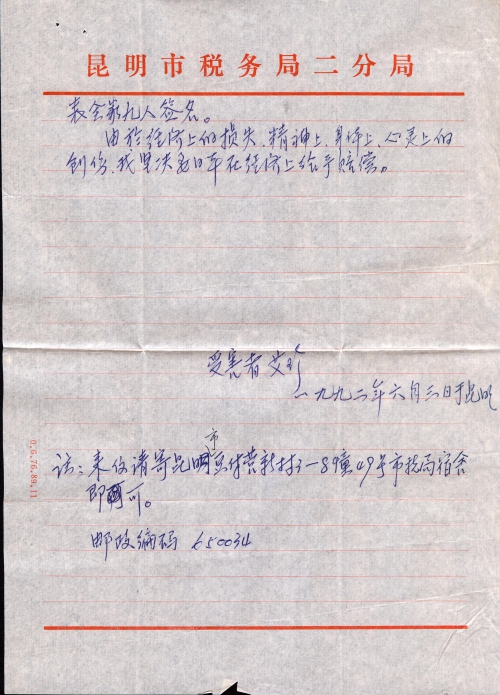 昆明市税务局二分局
表全家九人签名。
由于经济上的损失、精神上、身体上、心灵上的
创伤、我坚决要日本在经济上给予赔偿。
受害者 艾珍
一九九二年六月三日于昆明
注：来信请寄昆明市马村营新村3-89幢49号市税局宿舍
即可。
邮政编码 650034
0.6.76.89.11